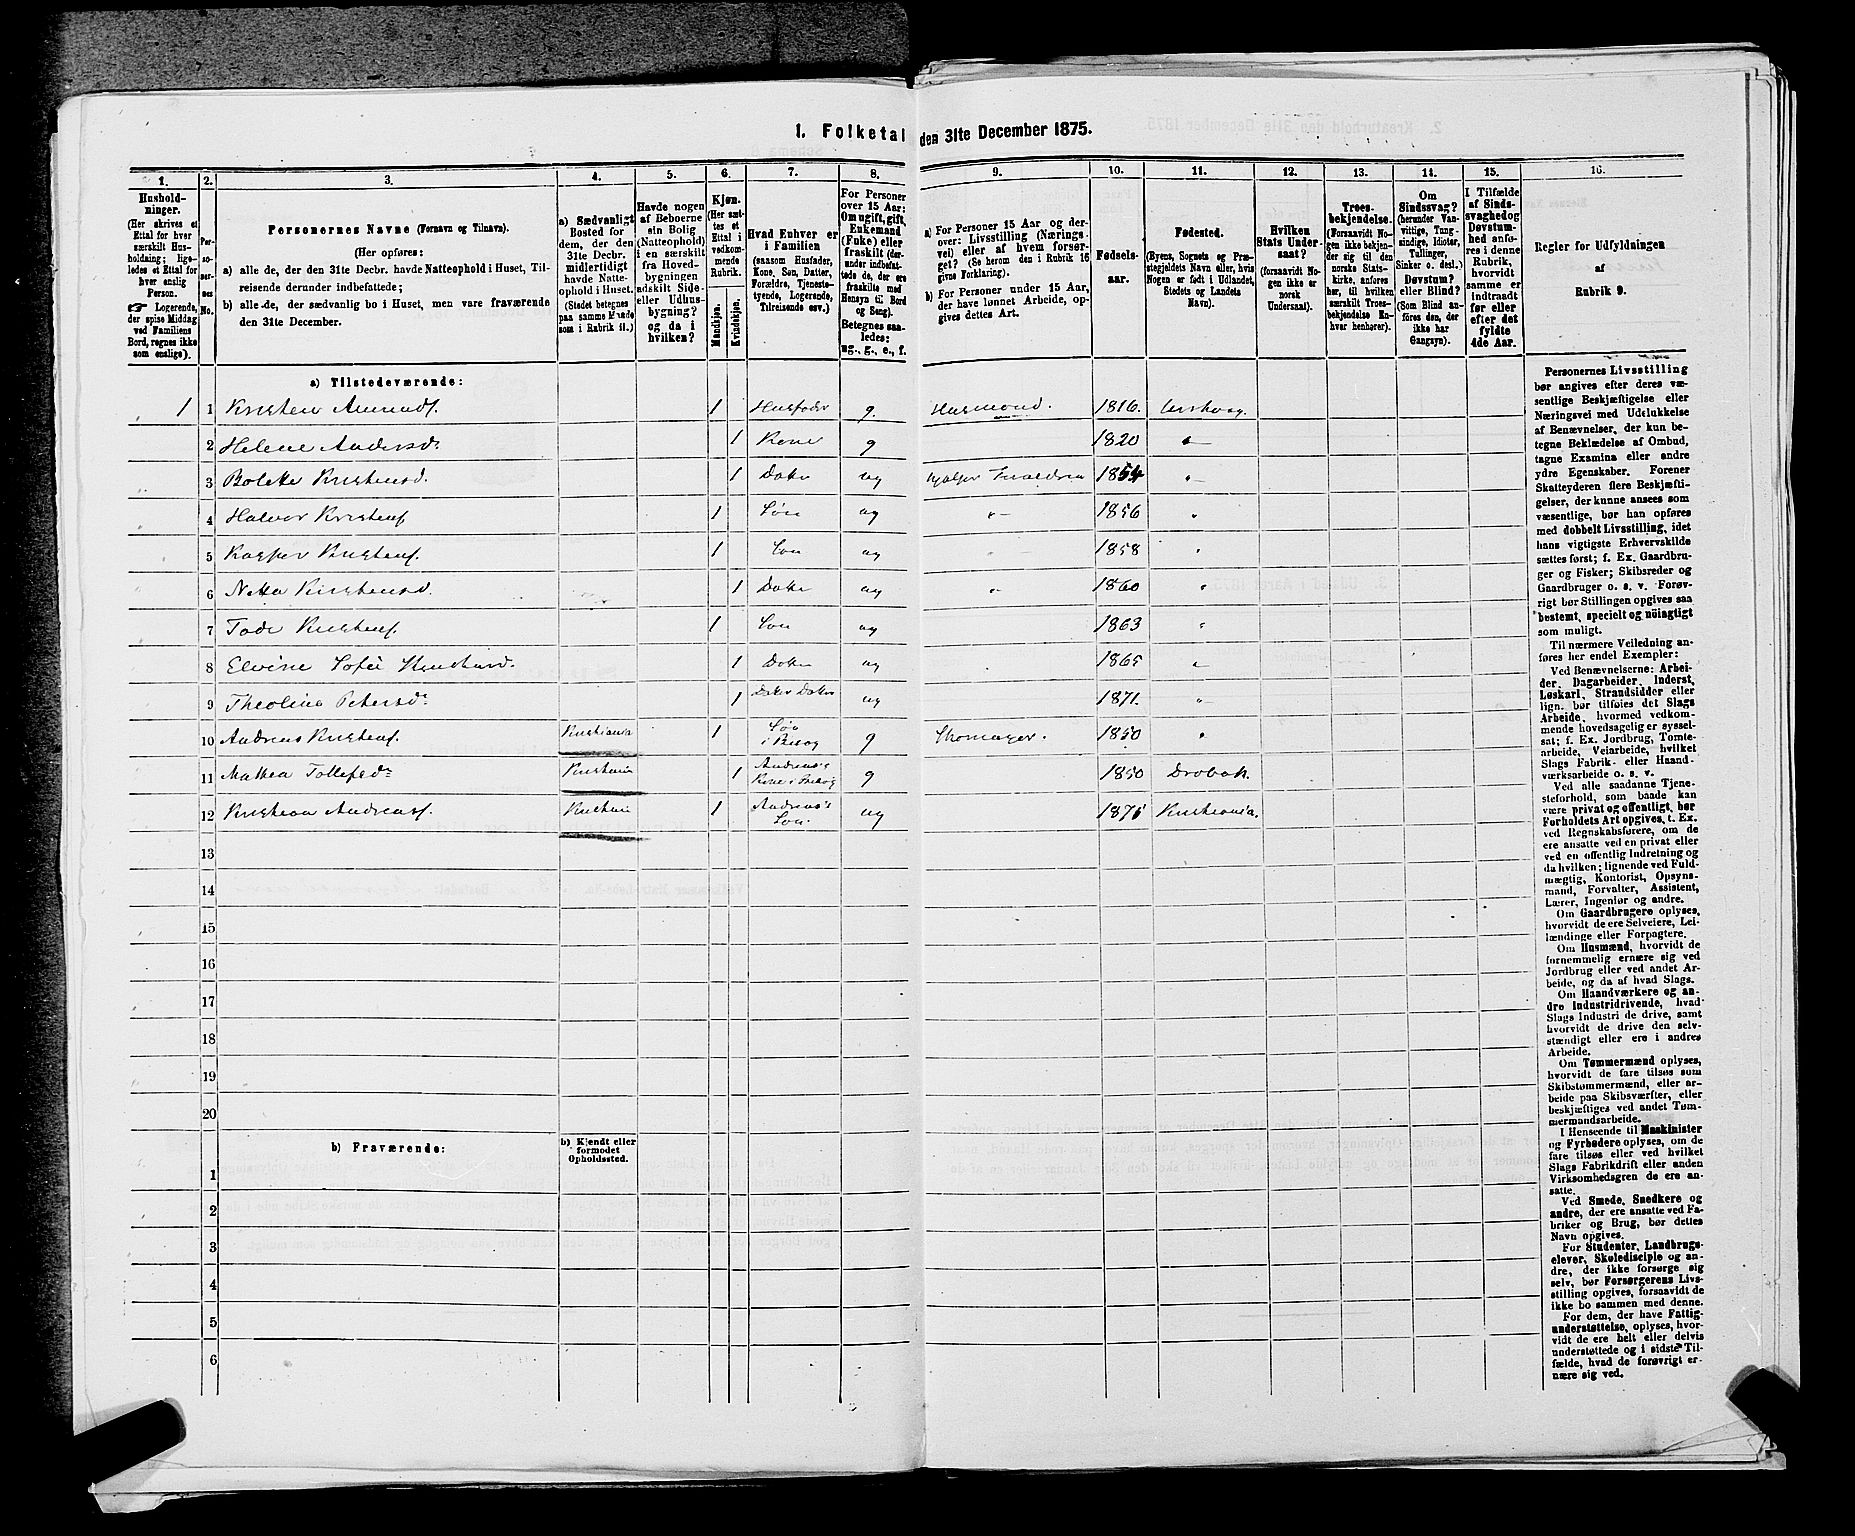 1. Folketal den 31te December 1875.
1.
2.
3.
4.
5.
6.
7.
8.
9.
10.
11.
12.
13.
14.
15.
16.
Hushold-
ninger.
(Her skrives et
Ettal for hver
særskilt Hus-
holdning; lige-
ledes et Ettal for
hver enslig
Person.
☞ Logerende,
der spise Middag
ved Familiens
Bord, regnes ikke
som enslige).
Per-
so-
ner-
nes
No.
Personernes Navne (Fornavn og Tilnavn).
(Her opføres:
a) alle de, der den 31te Decbr. havde Natteophold i Huset, Til-
reisende derunder indbefattede;
b) alle de, der sædvanlig bo i Huset, men vare fraværende
den 31te December.
a) Sædvanligt
Bosted for
dem, der den
31te Decbr.
midlertidigt
havde Natte-
ophold i Huset.
(Stedet betegnes
paa samme Maade
som i Rubrik 11.)
Havde nogen
af Beboerne
sin Bolig
(Natteophold)
i en særskilt
fra Hoved-
bygningen
adskilt Side-
eller Udhus-
bygning?
og da i
hvilken?
Kjøn.
(Her sæt-
tes et
Ettal i
vedkom-
mende
Rubrik.
Mandkjøn.
Kvindekjøn.
Hvad Enhver er
i Familien
(saasom Husfader,
Kone, Søn, Datter,
Forældre, Tjeneste-
tyende, Logerende,
Tilreisende osv.)
For Personer
over 15 Aar:
Om ugift, gift,
Enkemand
(Enke) eller
fraskilt (der-
under indbefat-
tede de, der ere
fraskilte med
Hensyn til Bord
og Seng).
Betegnes saa-
ledes:
ug., g., e., f.
a) For Personer 15 Aar og der-
over: Livsstilling (Nærings-
vei) eller af hvem forsør-
get? (Se herom den i Rubrik 16
givne Forklaring).
b) For Personer under 15 Aar,
der have lønnet Arbeide, op-
gives dettes Art.
Fødsels-
aar.
Fødested.
(Byens, Sognets og Præ-
stegjeldets Navn eller, hvis
Nogen er født i Udlandet,
Stedets og Landets
Navn).
Hvilken
Stats Under-
saat?
(forsaavidt No-
gen ikke er
norsk
Undersaat).
Troes-
bekjendelse.
(Forsaavidt No-
gen ikke bekjen-
der sig til den
norske Stats-
kirke, anføres
her, til hvilken
særskilt Troes-
bekjendelse En-
hver henhører).
Om
Sindssvag?
(herunder Van-
vittige, Tung-
sindige, Idioter,
Tullinger,
Sinker o. desl.)
Døvstum?
eller Blind?
(Som Blind an-
føres den, der
ikke har
Gangsyn).
I Tilfælde
af Sinds-
svaghed og
Døvstum-
hed anfø-
res i denne
Rubrik,
hvorvidt
samme er
indtraadt
før eller
efter det
fyldte
4de Aar.
Regler for Udfyldningen
af
Rubrik 9.
a) Tilstedeværende:
1 1 Kristen Amundf. 1 Husfader g. Husmand. 1816.
2 Helene Andersd. 1 Kone g 1820 "
3 Bolette Kristensd. 1 Dater ug Hjælper Foreldrene 1854 "
4 Halvor Kristenf 1 Søn ug " 1856 "
5 Kasper Kristenf. 1 Søn ug " 1858 "
6 Netta Kristensd. 1 Dater ug " 1860 "
7 Kristenf. 1 Søn ug 1863 "
8 Elvine Sofie Kristensd. 1 Dater ug 1865 "
9 Theoline Petersd. 1 Dater Dater ug 1871. "
10 Andreas Kristenf. Kristiania 1 Søn i Besøg g Skomager. 1850 "
11 Mathea Tollefsd. Kristiania 1 Andreas's Kone i Besøg g 1850 Drøbak.
12 Kristian Andreasf. Kristiania 1 Andreas's Søn. ug 1875 Kristiania.
13
14
15
16
17
18
19
20
b) Fraværende:
b) Kjendt eller
formodet
Opholdssted.
1
2
3
4
5
6
Personernes Livsstilling
bør angives efter deres væ-
sentlige Beskjæftigelse eller
Næringsvei med Udelukkelse
af Benævnelser, der kun be-
tegne Beklædelse af Ombud,
tagne Examina eller andre
ydre Egenskaber. Forener
Skatteyderen flere Beskjæfti-
gelser, der kunne ansees som
væsentlige, bør han opføres
med dobbelt Livsstilling, idet
hans vigtigste Erhvervskilde
sættes først; f. Ex. Gaardbru-
ger og Fisker; Skibsreder og
Gaardbruger o. s. v. Forøv-
rigt bør Stillingen opgives saa
bestemt, specielt og nöiagtigt
som muligt.
Til nærmere Veiledning an-
føres her endel Exempler:
Ved Benævnelserne: Arbei-
der, Dagarbeider, Inderst,
Løskarl, Strandsidder eller
lign. bør tilføies det Slags
Arbeide, hvormed vedkom-
mende hovedsagelig er syssel-
sat; f. Ex. Jordbrug, Tomte-
arbeide, Veiarbeide, hvilket
Slags Fabrik- eller Haand-
værksarbeide o. s. v.
Ved alle saadanne Tjene-
steforhold, som baade kan
være privat og offentligt, bør
Forholdets Art opgives, t. Ex.
ved Regnskabsførere, om de
ere ansatte ved en privat eller
ved en offentlig Indretning og
da hvilken; lignende ved Fuld-
mægtig, Kontorist, Opsyns-
mand, Forvalter, Assistent,
Lærer, Ingeniør og andre.
Om Gaardbrugere oplyses,
hvorvidt de ere Selveiere, Lei-
lændinge eller Forpagtere.
Om Husmænd, hvorvidt de
fornemmelig ernære sig ved
Jordbrug eller ved andet Ar-
beide, og da af hvad Slags.
Om Haandværkere og an-
dre Industridrivende, hvad
Slags Industri de drive, samt
hvorvidt de drive den selv-
stændigt eller ere i andres
Arbeide.
Om Tømmermænd oplyses,
hvorvidt de fare tilsøs som
Skibstømmermænd, eller ar-
beide paa Skibsværfter, eller
beskjæftiges ved andet Tøm-
mermandsarbeide.
I Henseende til Maskinister
og Fyrbødere oplyses, om de
fare tilsøs eller ved hvilket
Slags Fabrikdrift eller anden
Virksomhedsgren de ere an-
satte.
Ved Smede, Snedkere og
andre, der ere ansatte ved Fa-
briker og Brug, bør dettes
Navn opgives.
For Studenter, Landbrugs-
elever, Skoledisciple og an-
dre, der ikke forsørge sig
selv, bør Forsørgerens Livs-
stilling opgives, forsaavidt de
ikke bo sammen med denne.
For dem, der have Fattig-
understøttelse, oplyses, hvor-
vidt de ere helt eller delvis
understøttede og i sidste Til-
fælde, hvad de forøvrigt er-
nære sig ved.